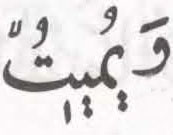 وَيُمِيتُ